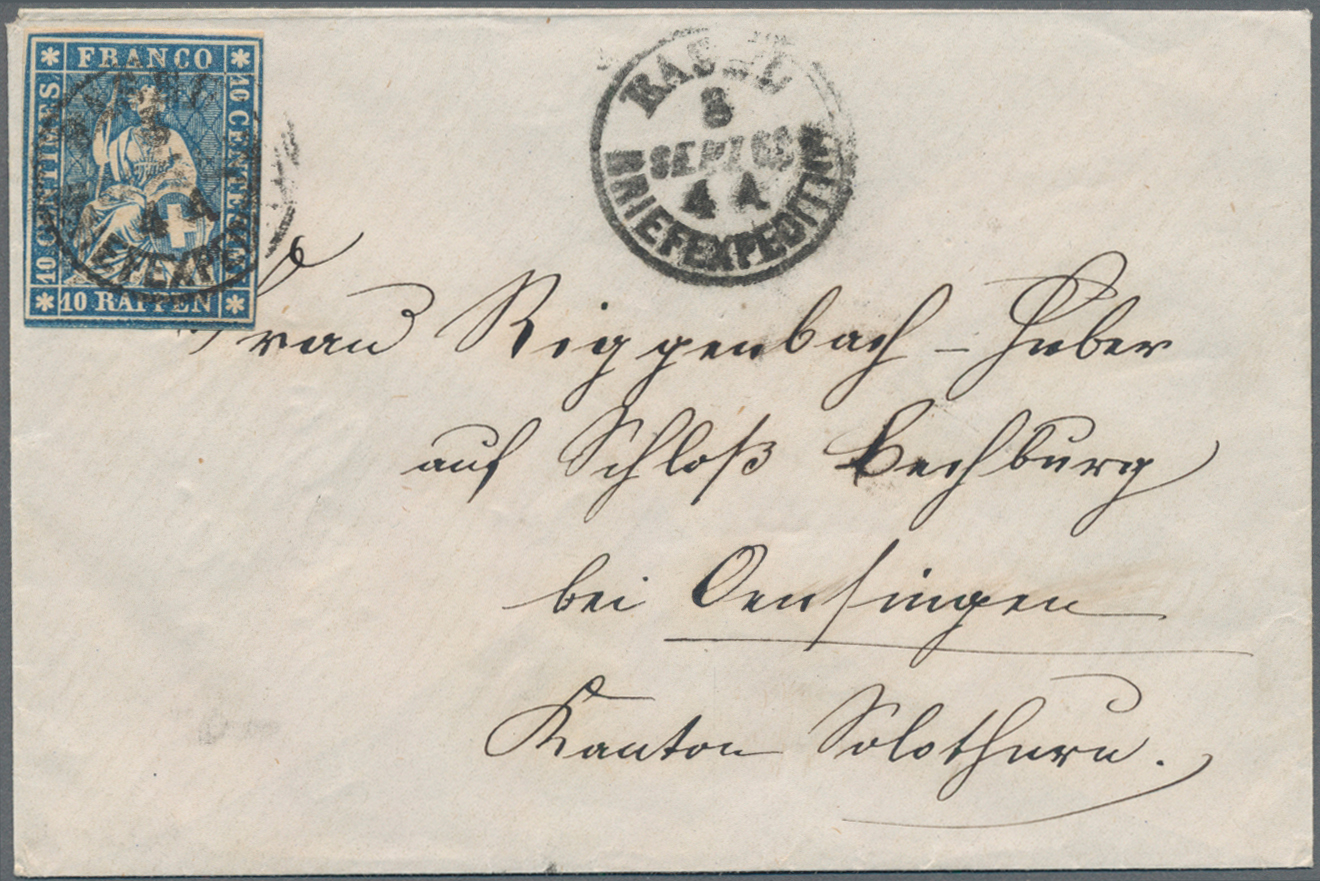 FRANCO
10 CENTIMES
10 CENTESIMI
10 RAPPEN
BASEL
8
SEPT 63
4 A
BRIEFEXPEDITION
Frau Riggenbach - Huber
auf Schloß Bechburg
bei Oensingen
Kanton Solothurn.